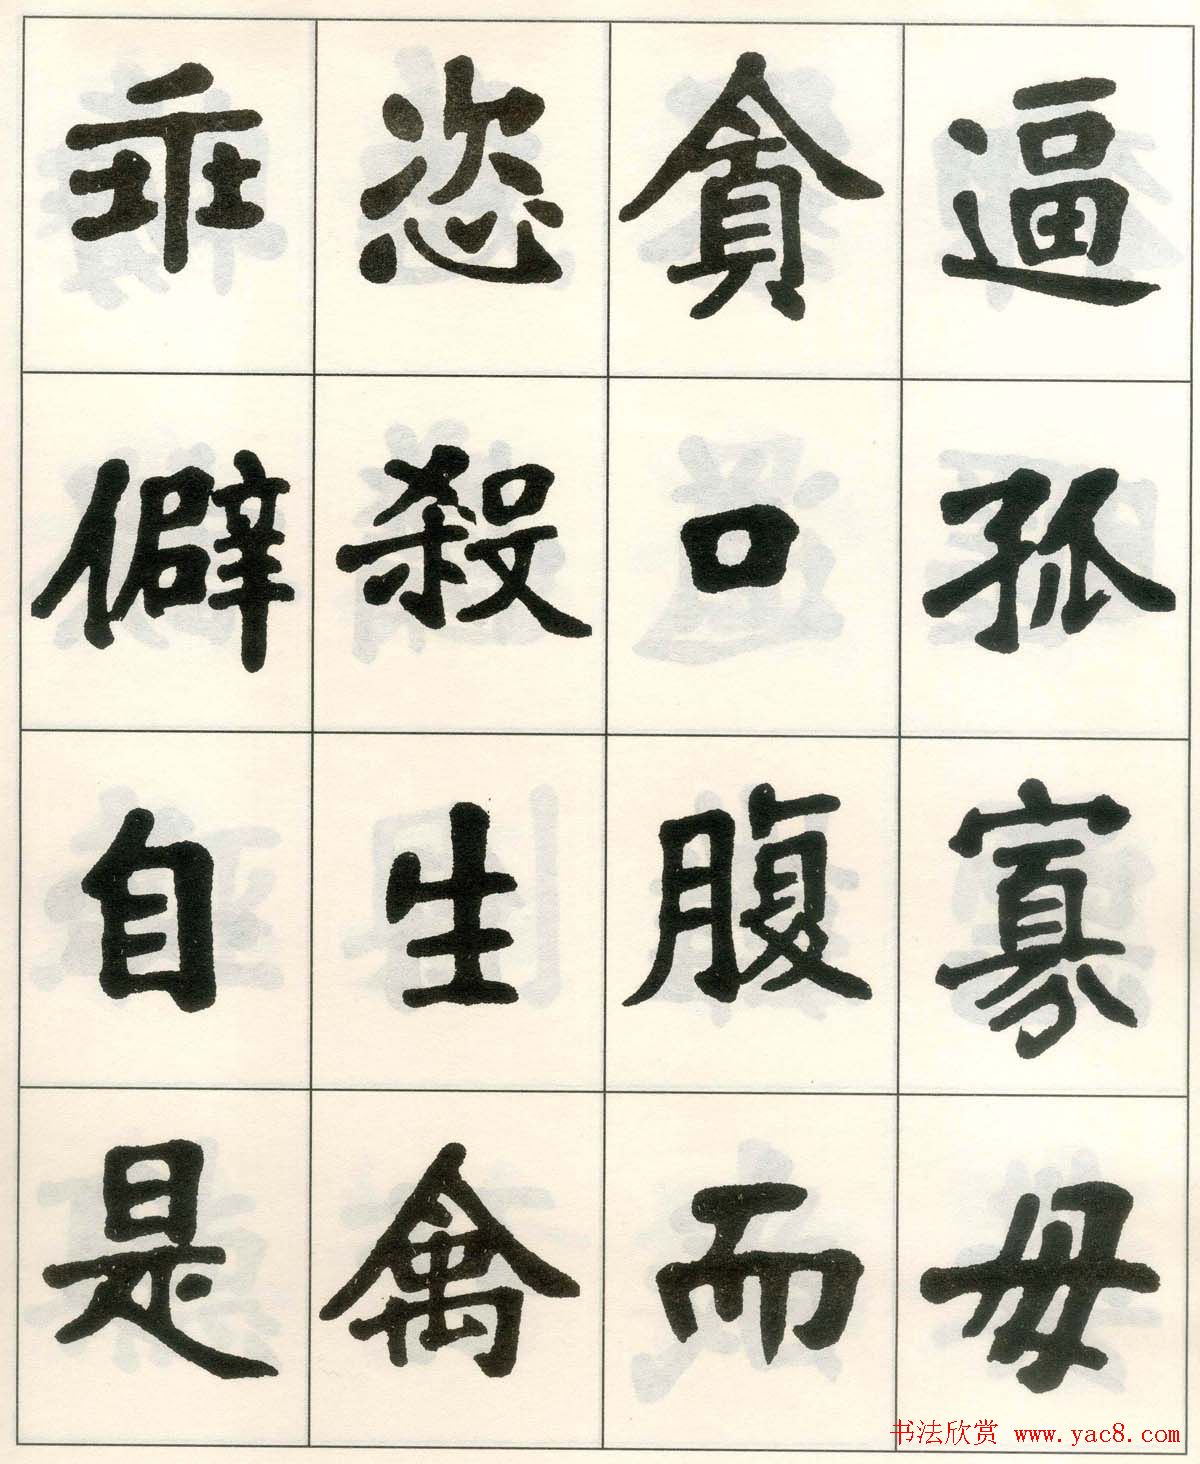 逼孤寡毋
貪口腹而
恣殺生禽
乖僻自是
书法欣赏 www.yac8.com